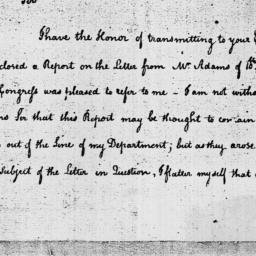 I have the Honor of transmitting to your
closed a Report on the Letter from Mr Adams of 15th
Congress was pleased to refer to me – I am not witho
ns Sir that this Report may be thought to contain
out of the Line of my Department; but as they arose
Subject of the Letter in Question, I flatter myself that